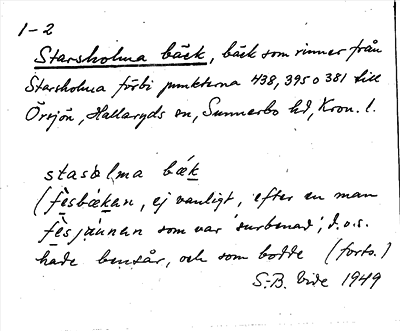 1-2
Starsholma bäck, bäck som rinner från
Starsholma förbi punkterna 438, 395 o 381 till
Örsjön, Hallaryds sn, Sunnerbo hd, Kron. l.
stasɒlma bæk
(fèsbækan, ej vanligt, efter en man
fèsjáunan som var 'surbenad', d.v.s.
hade bensår, och som bodde (forts.)
S.-B. Vide 1949